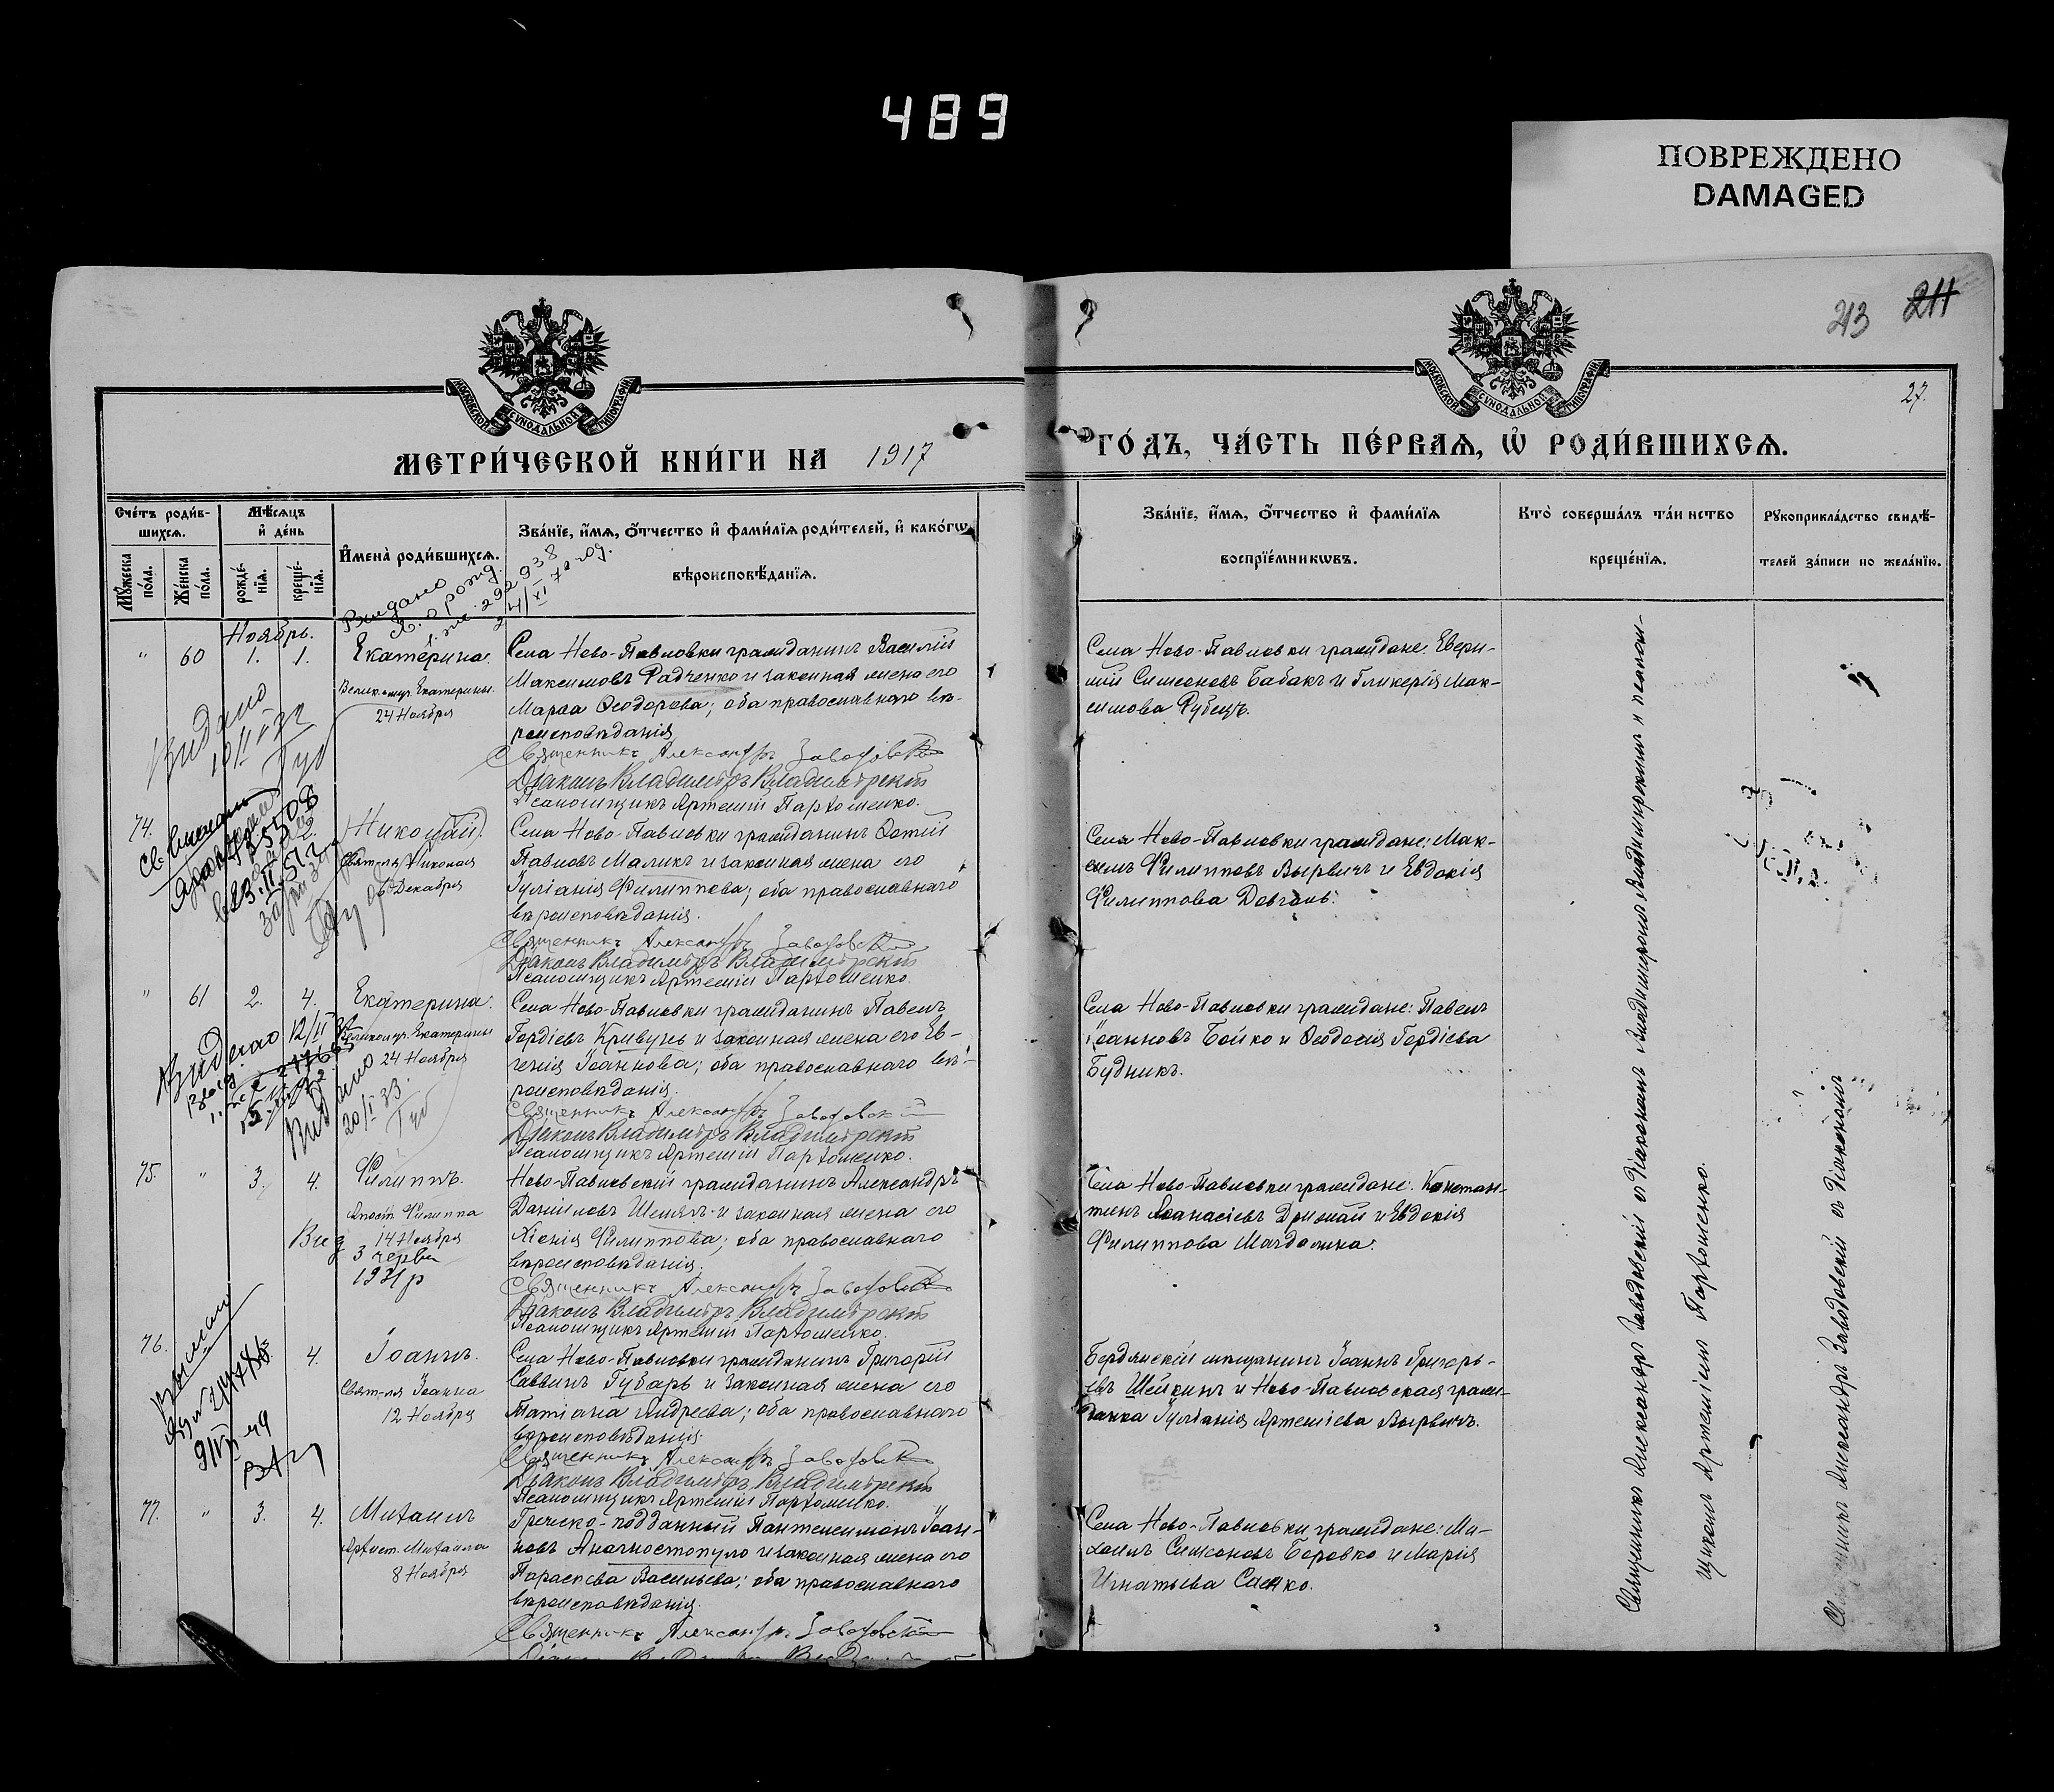 489
ПОВРЕЖДЕНО
DAMAGED
213 211
27.
МОСКОВСКОЙ СѴНОДАЛЬНОЙ ТИПОГРАФІИ
МОСКОВСКОЙ СѴНОДАЛЬНОЙ ТИПОГРАФІИ
МЕТРИ́ЧЕСКОЙ КНИ́ГИ НА 1917
ГО́ДЪ, ЧА́СТЬ ПЕ́РВАѦ, Ѿ РОДИ́ВШИХСѦ.
Сче́тъ роди́в-
шихсѧ.
Мꙋ́жеска по́ла.
Же́нска по́ла.
Мѣ́сѧцъ
и҆ де́нь
рожде́-
нїѧ.
креще́-
нїѧ.
И҆мена̀ роди́вшихсѧ.
Зва́нїе, и҆́мѧ, ѻ҆́тчество и҆ фами́лїѧ роди́телей, и҆ како́гѡ
вѣроисповѣ́данїѧ.
Зва́нїе, и҆́мѧ, ѻ҆́тчество и҆ фами́лїѧ
воспрїе́мникѡвъ.
Кто̀ соверша́лъ та́инство
креще́нїѧ.
Рꙋкоприкла́дство свидѣ́-
телей за́писи по жела́нїю.
Ноябрь.
" 60 1. 1. Екатерина.
Велик.-муч. Екатерины
24 Ноября
Села Ново-Павловки гражданинъ Василій
Максимовъ Радченко и законная жена его
Марѳа Ѳеодорова; оба православнаго вѣ-
роисповѣданія
Священникъ Александръ Заводовскій
Діаконъ Владиміръ Владимірскій
Псаломщикъ Артемій Пархоменко.
Села Ново-Павловки граждане:
Симеоновъ Бабакъ и Гликерія Мак-
симова Рубецъ.
Видано
74. 2. Николай.
Святителя Николая
6 Декабря
Села Ново-Павловки гражданинъ Фотій
Павловъ Маликъ и законная жена его
Іуліанія Филиппова; оба православнаго
вѣроисповѣданія.
Священникъ Александръ Заводовскій
Діаконъ Владиміръ Владимірскій
Псаломщикъ Артемій Пархоменко.
Села Ново-Павловки граждане: Мак-
симъ Филипповъ Вырвичъ и Евдокія
Филиппова Довгань.
" 61 2. 4. Екатерина.
Великомуч. Екатерины
24 Ноября
Села Ново-Павловки гражданинъ Павелъ
Гордіевъ Кривунь и законная жена его Ев-
генія Іоаннова; оба православнаго вѣ-
роисповѣданія.
Священникъ Александръ Заводовскій
Діаконъ Владиміръ Владимірскій
Псаломщикъ Артемій Пархоменко.
Села Ново-Павловки граждане: Павелъ
Іоанновъ Бойко и Ѳеодосія Гордіева
Будникъ.
Видано
20/I 33.
75. " 3. 4. Филиппъ.
Апост. Филиппа
14 Ноября
Вид
3 червн
1931 р
Ново-Павловскій гражданинъ Александръ
Даніиловъ Шемягъ и законная жена его
Ксенія Филиппова; оба православнаго
вѣроисповѣданія.
Священникъ Александръ Заводовскій
Діаконъ Владиміръ Владимірскій
Псаломщикъ Артемій Пархоменко.
Села Ново-Павловки граждане: Констан-
тинъ Аѳанасіевъ Дрижай и Евдокія
Филиппова
76. 4. Іоаннъ.
Свят-ля Іоанна
12 Ноября
Села Ново-Павловки гражданинъ Григорій
Саввинъ Губарь и законная жена его
Татіана Андреева; оба православнаго
вѣроисповѣданія.
Священникъ Александръ Заводовскій
Діаконъ Владиміръ Владимірскій
Псаломщикъ Артемій Пархоменко.
Бердянскій мѣщанинъ Іоаннъ Григорь-
евъ Шейкинъ и Ново-Павловская граж-
данка Іуліанія Артеміева Вырвичъ.
77. " 3. 4. Михаилъ
Архист. Михаила
8 Ноября
Греческо-подданный Пантелеимонъ Іоан-
новъ Анагностопуло и законная жена его
Параскева Васильева; оба православнаго
вѣроисповѣданія.
Священникъ Александръ Заводовскій
Села Ново-Павловки граждане: Ми-
хаилъ Симеоновъ Боровко и Марія
Игнатьева Сашко.
Священникъ Александръ Заводовскій съ Діакономъ Владиміромъ Владимірскимъ и псалом-
щикомъ Артеміемъ Пархоменко.
Священникъ Александръ Заводовскій съ Діакономъ